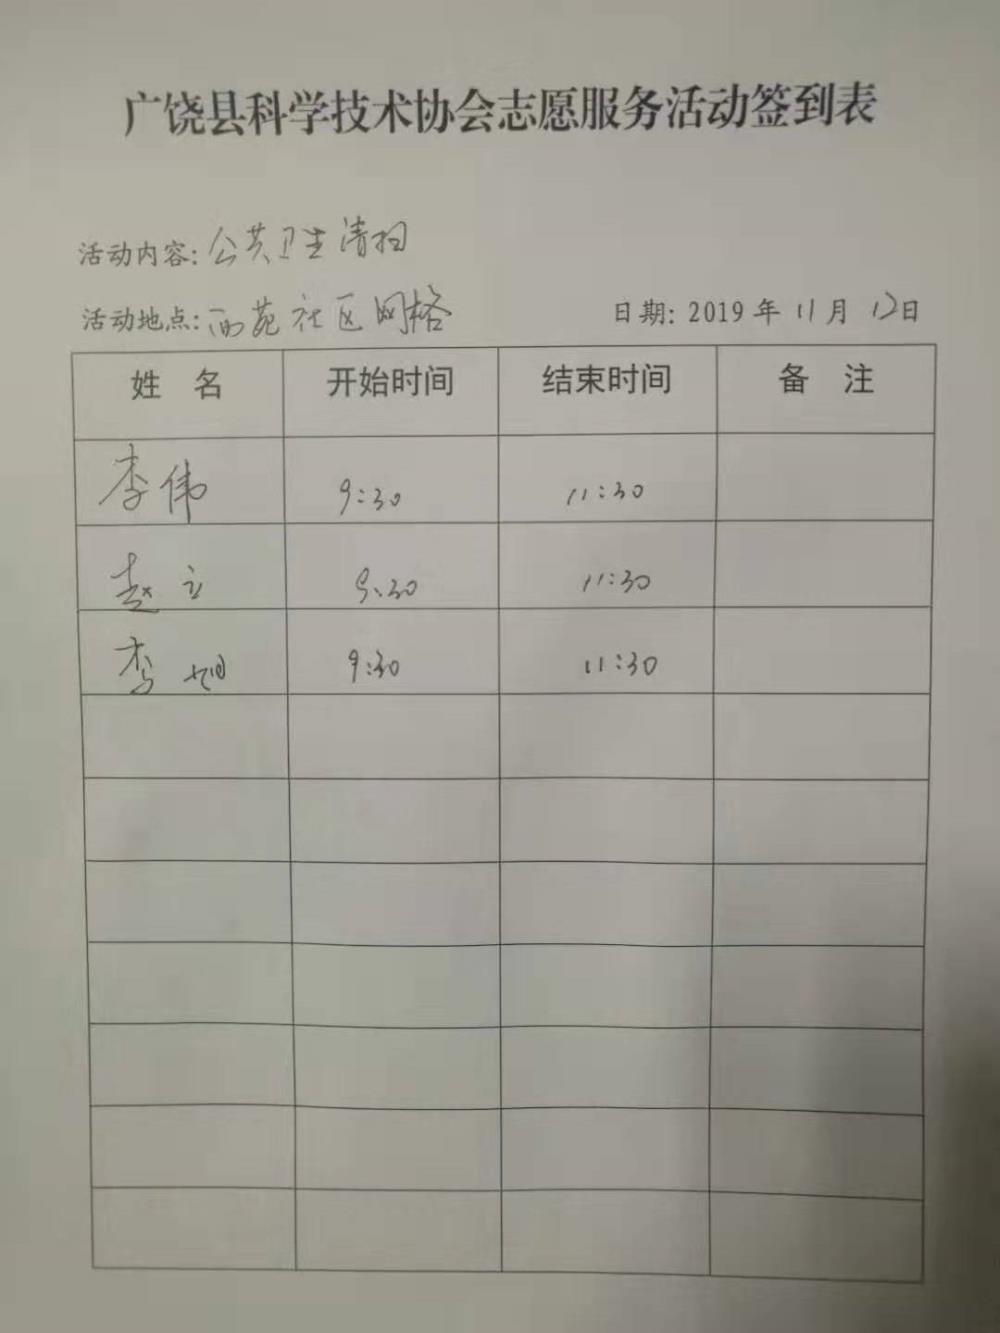 广饶县科学技术协会志愿服务活动签到表
活动内容: 公共卫生清扫
活动地点: 西苑社区网格 日期: 2019年11月12日
姓 名 开始时间 结束时间 备 注
李伟 9:30 11:30
赵立 9:30 11:30
李旭 9:30 11:30